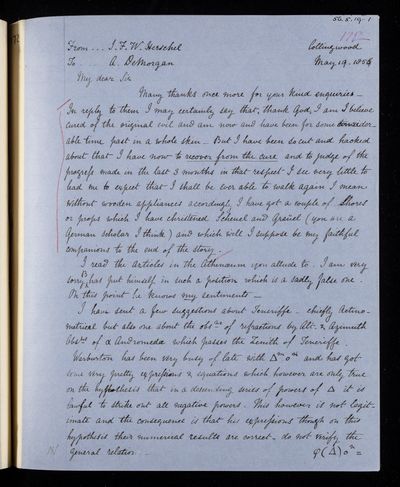 56.5.19.1
From ... J. F. W. Herschel Collingwood
To ... A. DeMorgan May 19. 1856
My dear Sir
Many thanks once more for your kind enquiries –
In reply to them I may certainly say that, thank God, I am I believe
cured of the original evil and am now and have been for some consider-
able time past in a whole skin – But I have been so cut and hacked
about that I have now to recover from the cure and to judge of the
progress made in the last 3 months in that respect I see very little to
lead me to expect that I shall be ever able to walk again I mean
without wooden appliances accordingly I have got a couple of Shores
or props which I have christened Scheuel and Gräuel (you are a
German scholar I think) and which will I suppose be my faithful
companions to the end of the story.
I read the articles in the Athenæum you allude to. I am very
sorry B has put himself in such a position which is a sadly false one.
On this point he knows my sentiments –
I have sent a few suggestions about Teneriffe – chiefly Actino-
metrical but also one about the obsns of refractions by Alt. & Azimuth
Obsns of α Andromeda which passes the Zenith of Teneriffe.
Warburton has been very busy of late with Δᵐ0ⁿ and has got
some very pretty expressions & equations which however are only true
on the hypothesis that in a descending series of powers of Δ it is
lawful to strike out all negative powers. This however is not legit-
imate and the consequence is that his expressions though on this
hypothesis their numerical results are correct – do not verify the
general relation ..
φ(Δ)0ⁿ =